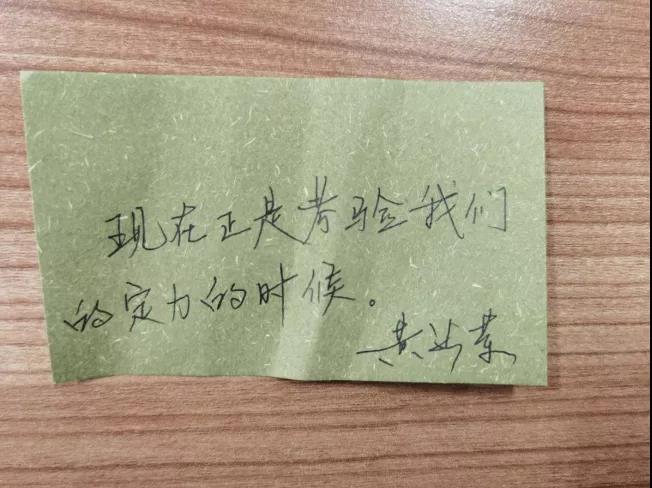 现在正是考验我们
的定力的时候。
黄